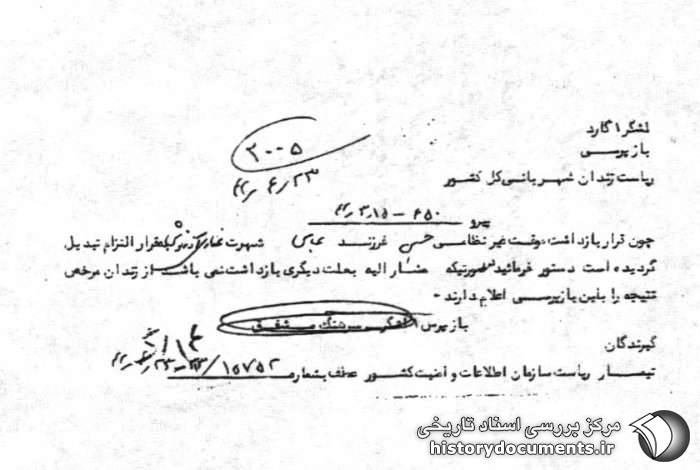 لشگر ۱ گارد
بازپرسی
۲۰۰۵
ریاست زندان شهربانی کل کشور
۲۳/۶/
پیرو ۶۵۰ – ۱۵/۳/
چون قرار بازداشت موقت غیر نظامی حسن فرزند عباس شهرت بقرار التزام تبدیل
گردیده است دستور فرمائید در صورتیکه مشار الیه بعلت دیگری بازداشت نمی باشد از زندان مرخص
نتیجه را باین بازپرسی اعلام دارند -
بازپرس لشگر سرهنگ
گیرندگان
تیمسار ریاست سازمان اطلاعات و امنیت کشور عطف بشماره ۱۵۷۵۲/
مرکز بررسی اسناد تاریخی
historydocuments.ir